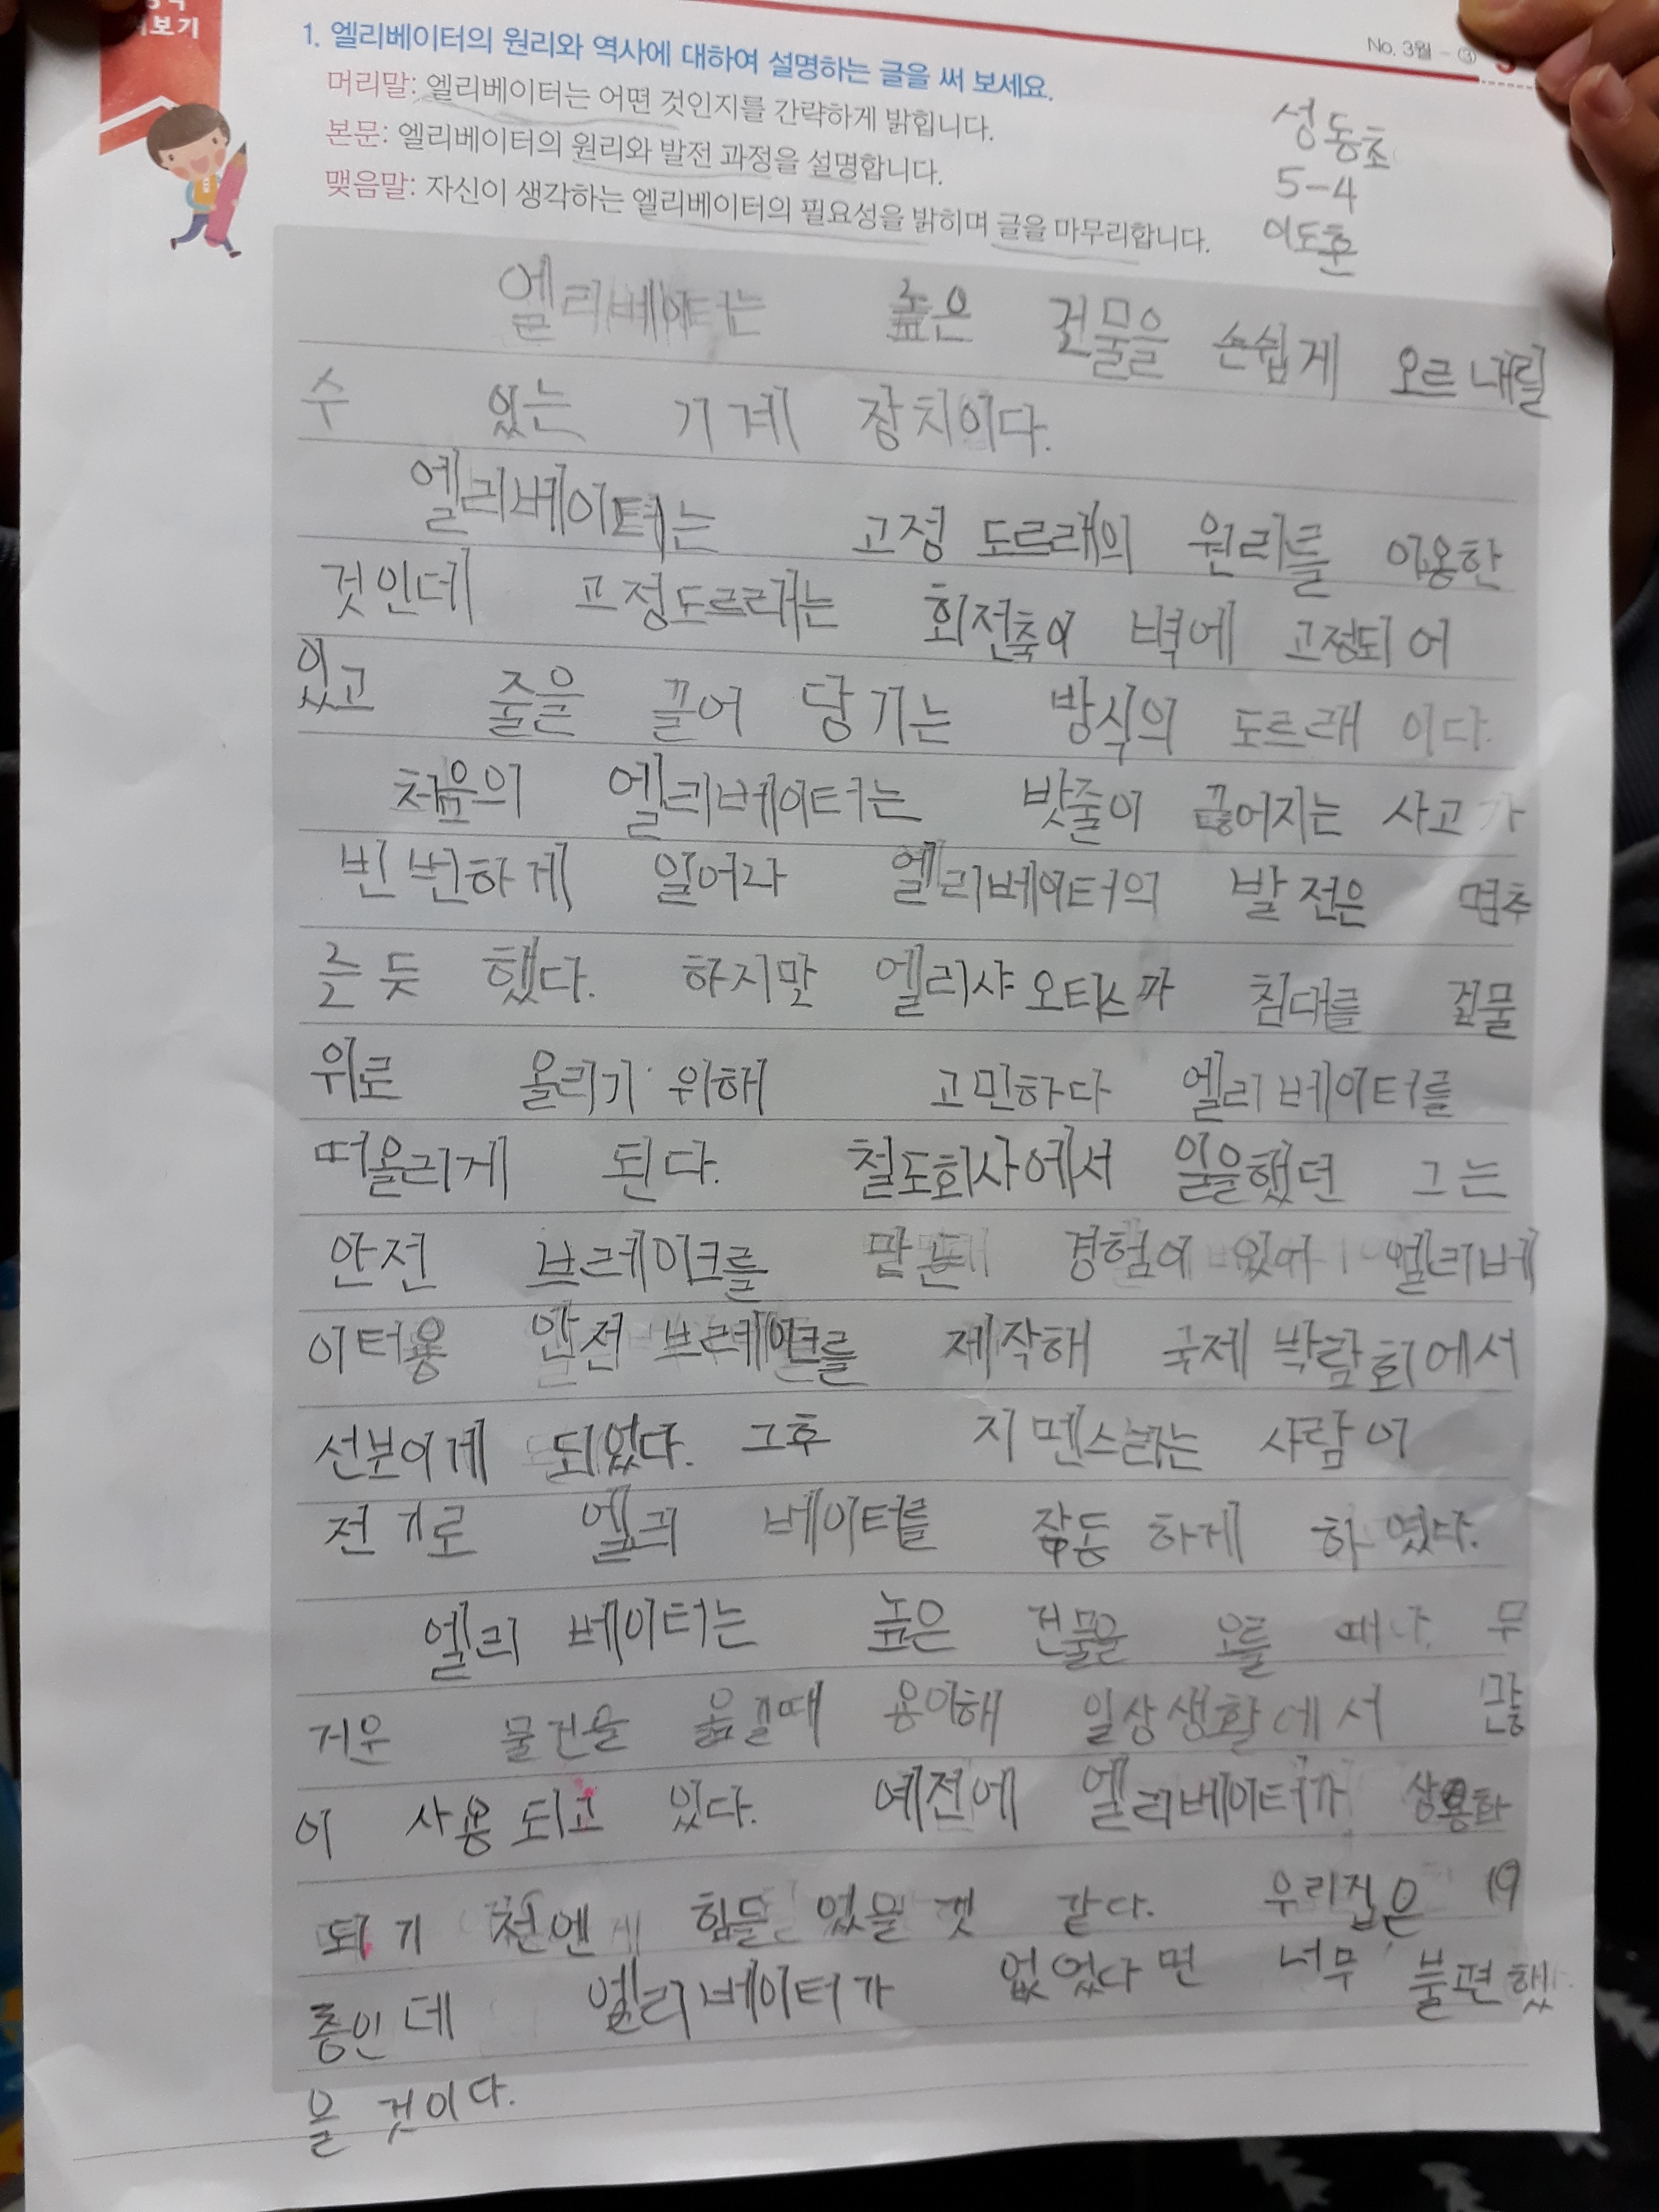 보기
No. 3월 - ③
1. 엘리베이터의 원리와 역사에 대하여 설명하는 글을 써 보세요.
머리말: 엘리베이터는 어떤 것인지를 간략하게 밝힙니다.
본문: 엘리베이터의 원리와 발전 과정을 설명합니다.
맺음말: 자신이 생각하는 엘리베이터의 필요성을 밝히며 글을 마무리합니다.
성동초
5-4
이도훈
엘리베이터는 높은 건물을 손쉽게 오르내릴
수 있는 기계 장치이다.
엘리베이터는 고정 도르래의 원리를 이용한
것인데 고정도르래는 회전축이 벽에 고정되어
있고 줄을 끌어 당기는 방식의 도르래 이다.
처음의 엘리베이터는 밧줄이 끊어지는 사고가
빈번하게 일어나 엘리베이터의 발전은 멈추
는 듯 했다. 하지만 엘리샤 오티스가 침대를 건물
위로 올리기 위해 고민하다 엘리베이터를
떠올리게 된다. 철도회사에서 일을했던 그는
안전 브레이크를 만든 경험이 있어 엘리베
이터용 안전 브레이크를 제작해 국제 박람회에서
선보이게 되었다. 그후 지멘스라는 사람이
전기로 엘리베이터를 작동 하게 하였다.
엘리베이터는 높은 건물을 오를 때나 무
거운 물건을 옮길때 용이해 일상생활에서 많
이 사용되고 있다. 예전에 엘리베이터가 상용화
되기 전엔 힘들었을 것 같다. 우리집은 19
층인데 엘리베이터가 없었다면 너무 불편했
을 것이다.